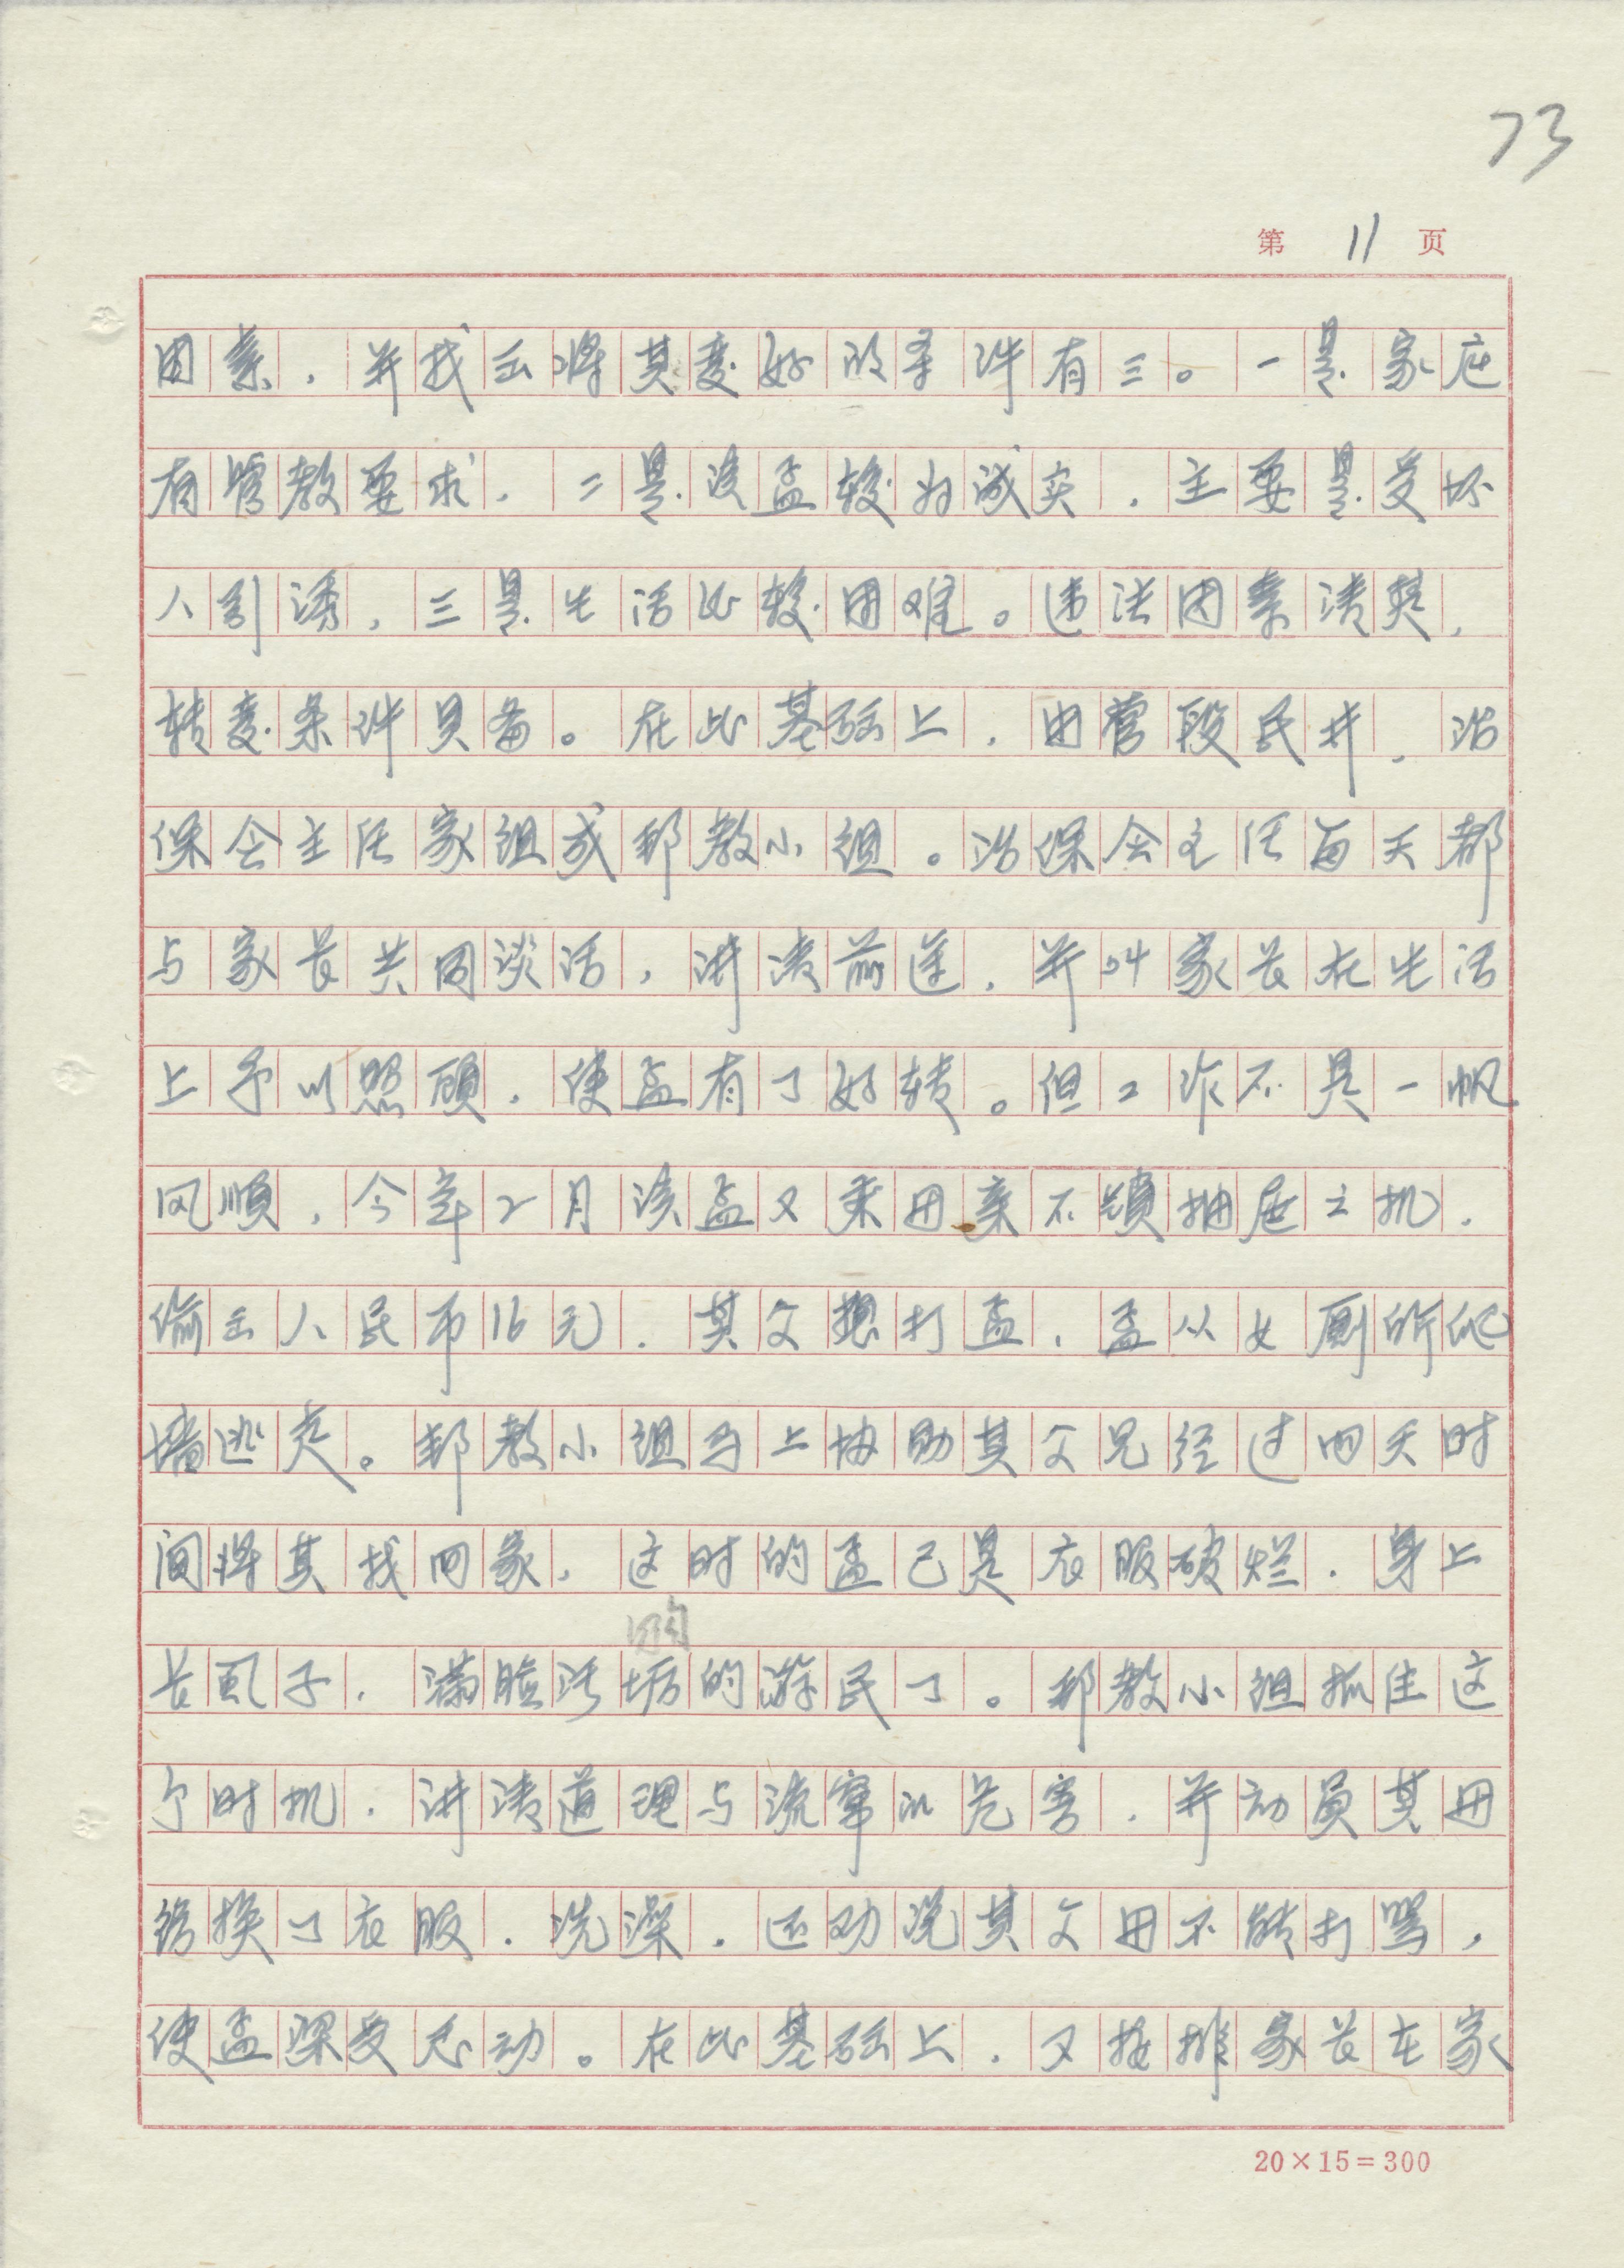 73
第 11 页
因素，并找出将其变好的条件有三。一是家庭
有管教要求，二是该孟较为诚实，主要是受坏
人引诱，三是生活比较困难。违法因素清楚，
转变条件具备。在此基础上，由管段民井，治
保会主任家组成邦教小组。治保会主任每天都
与家长共同谈话，讲清前途，并叫家长在生活
上予以照顾，使孟有了好转。但工作不是一帆
风顺，今年2月该孟又乘母亲不锁抽屉之机，
偷出人民币16元，其父想打孟，孟从女厕所爬
墙逃走。邦教小组马上协助其父兄经过四天时
间将其找回家，这时的孟已是衣服破烂，身上
长虱子，满脸污垢的游民了。邦教小组抓住这
个时机，讲清道理与流窜的危害，并动员其母
给换了衣服，洗澡，还劝说其父母不能打骂，
使孟深受感动。在此基础上，又按排家长在家
20×15=300